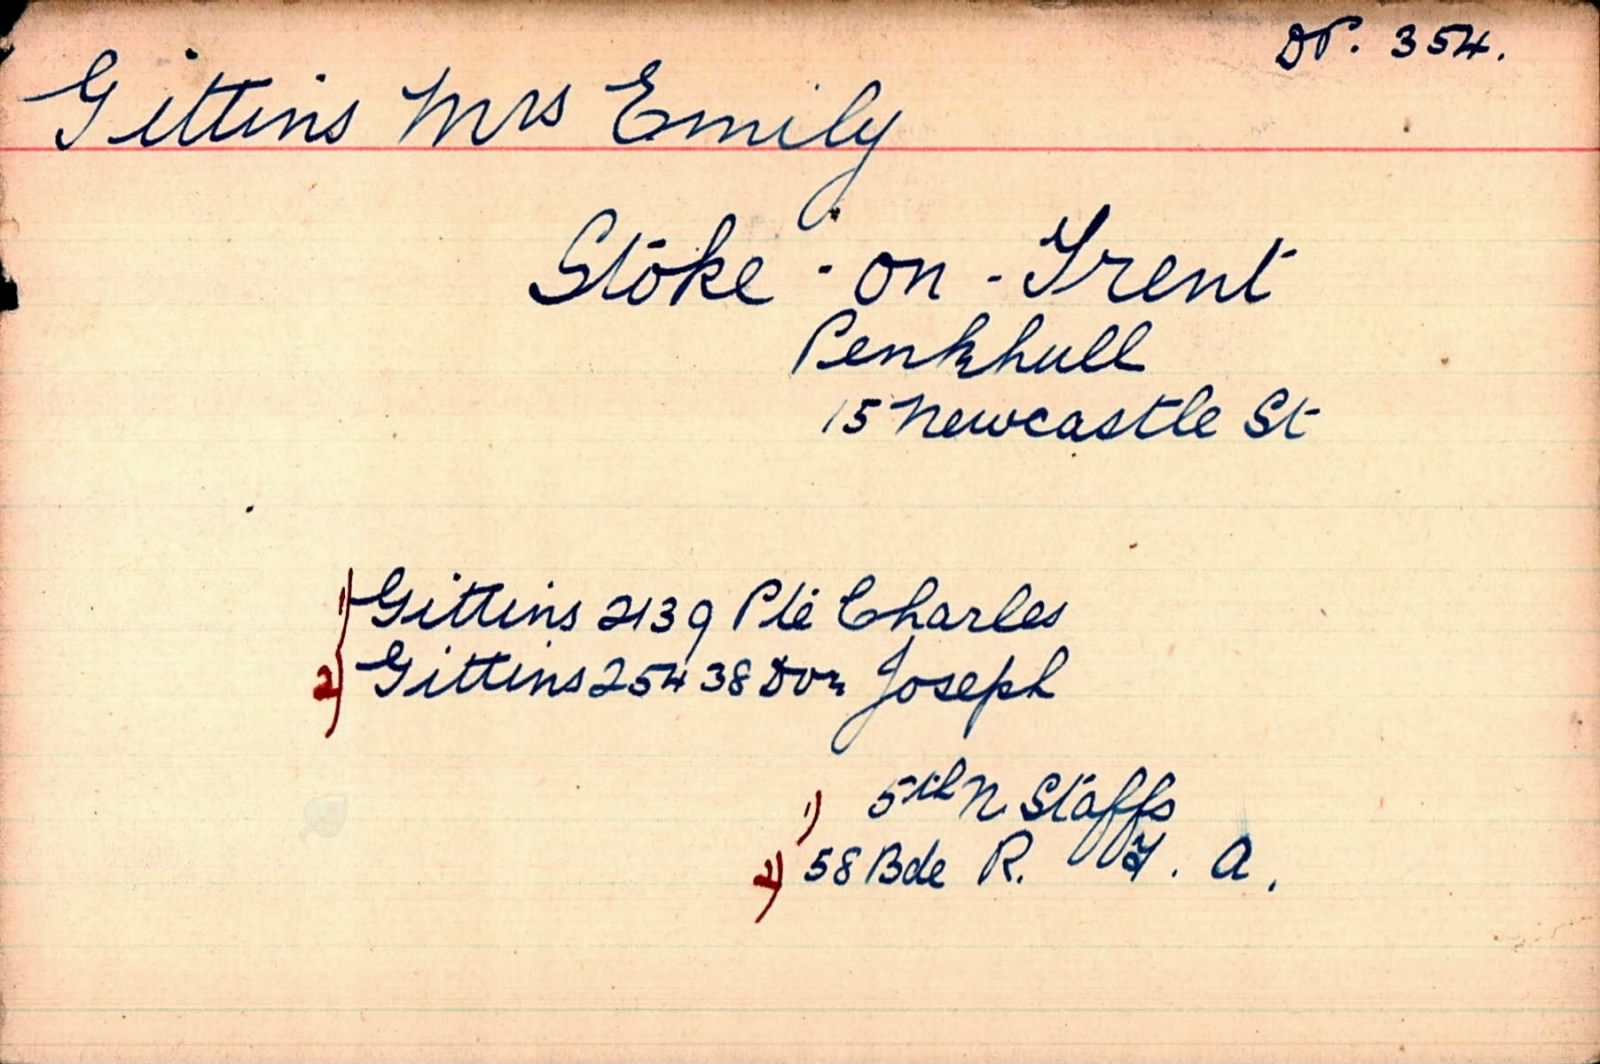 DP. 354.
Gittins Mrs Emily
Stoke-on-Trent
Penkhull
15 Newcastle St
1) Gittins 2139 Pte Charles
2) Gittins 25438 Dvr Joseph
1) 5th N Staffs
2) 58 Bde R. F. A.